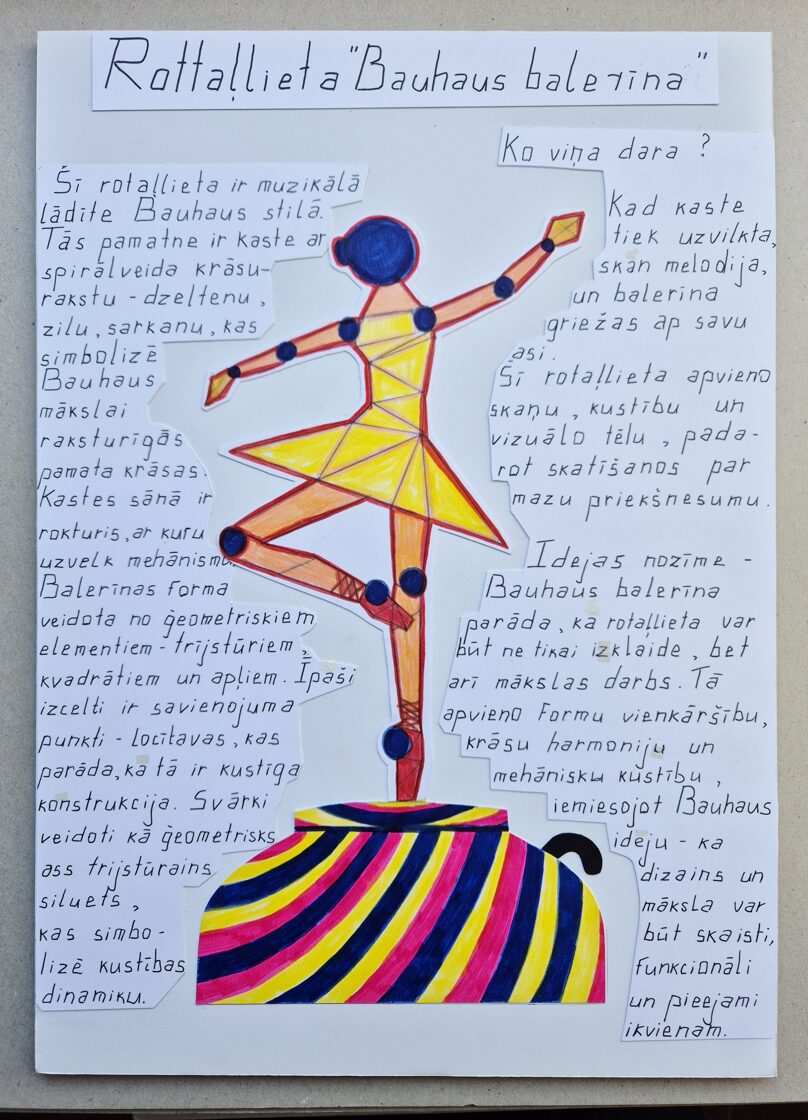 Rottaļlieta "Bauhaus balerīna"
Šī rotaļlieta ir muzikālā
lādīte Bauhaus stilā.
Tās pamatne ir kaste ar
spirālveida krāsu-
rakstu - dzeltenu,
zilu, sarkanu, kas
simbolizē
Bauhaus
mākslai
raksturīgās
pamata krāsas.
Kastes sānā ir
rokturis, ar kuru
uzvelk mehānismu.
Balerīnas forma
veidota no ģeometriskiem
elementiem - trījstūriem,
kvadrātiem un apļiem. Īpaši
izcelti ir savienojuma
punkti - locītavas, kas
parāda, ka tā ir kustīga
konstrukcija. Svārki
veidoti kā ģeometrisks
ass trijstūrains
siluets,
kas simbo-
lizē kustības
dinamiku.
Ko viņa dara ?
Kad kaste
tiek uzvilkta,
skan melodija,
un balerīna
griežas ap savu
asi.
Šī rotaļlieta apvieno
skaņu, kustību un
vizuālo tēlu, pada-
rot skatīšanos par
mazu priekšnesumu.
Idejas nozīme -
Bauhaus balerīna
parāda, ka rotaļlieta var
būt ne tikai izklaide, bet
arī mākslas darbs. Tā
apvieno formu vienkāršību,
krāsu harmoniju un
mehānisku kustību,
iemiesojot Bauhaus
ideju - ka
dizains un
māksla var
būt skaisti,
funkcionāli
un pieejami
ikvienam.